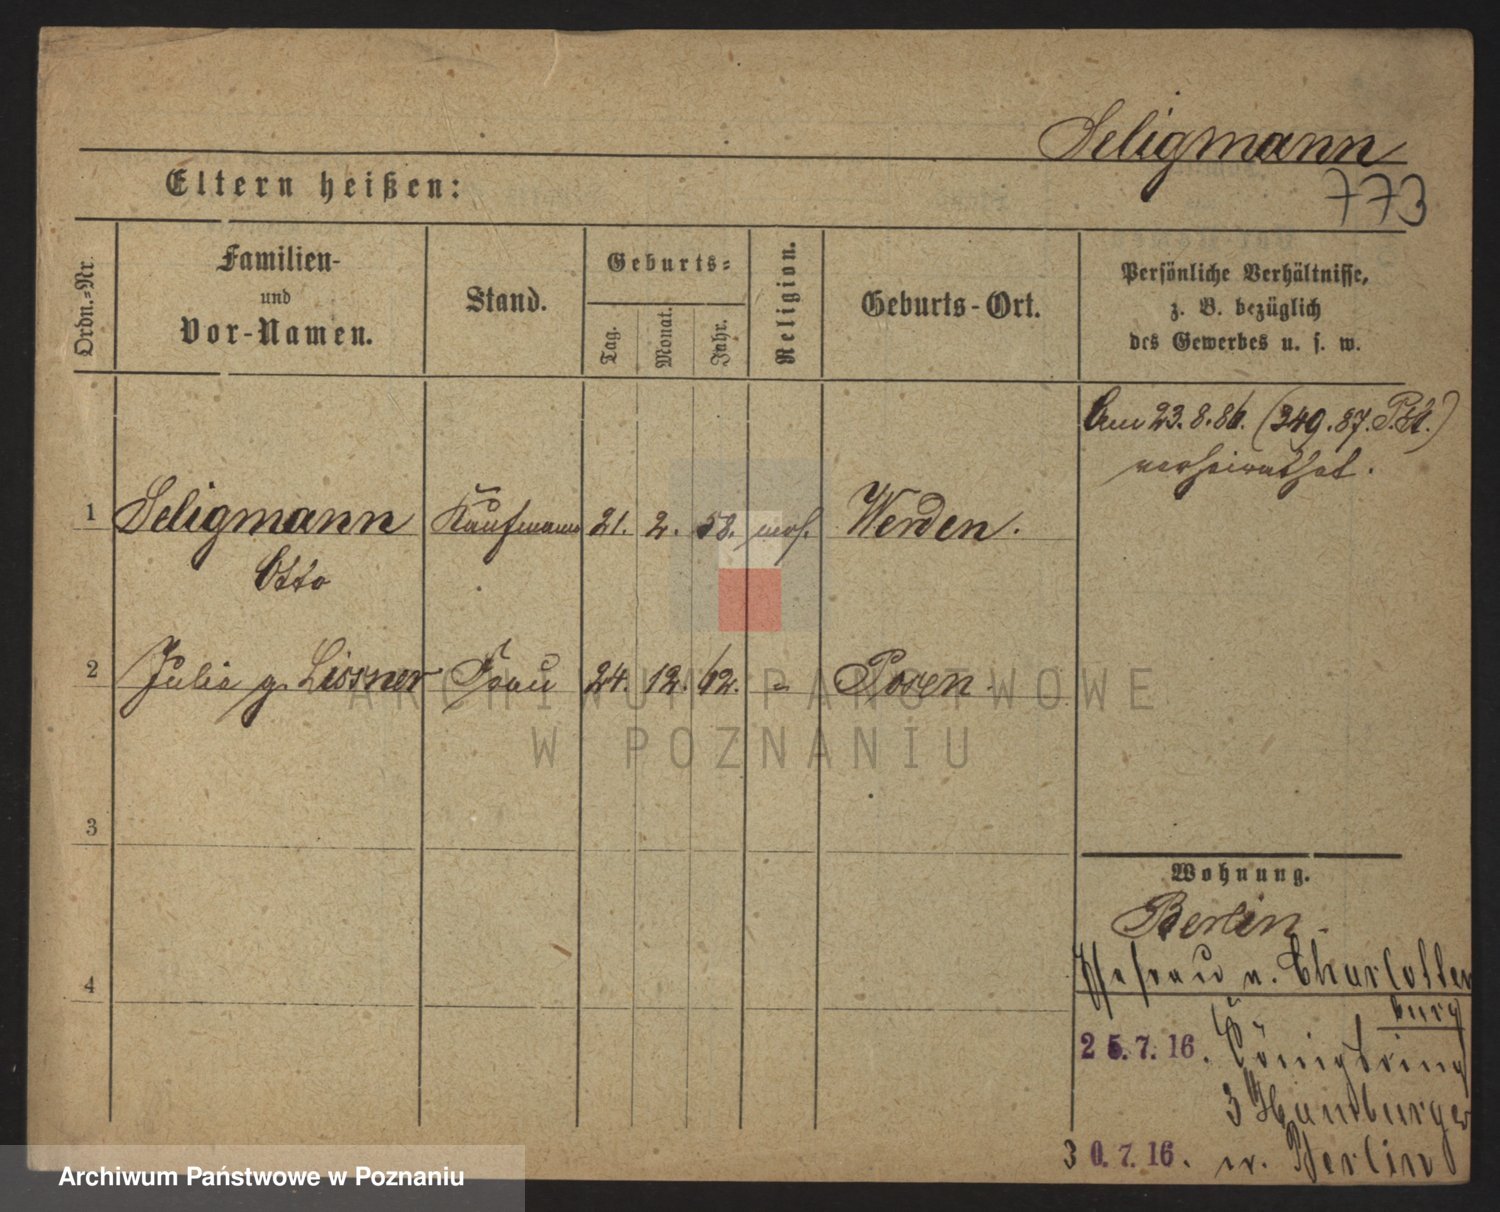 Seligmann
773
Eltern heißen:
Ordn.=Nr.
Familien-
und
Vor-Namen.
Stand.
Geburts=
Tag.
Monat.
Jahr.
Religion.
Geburts-Ort.
Persönliche Verhältnisse,
z. B. bezüglich
des Gewerbes u. s. w.
Am 23.8.86. (349.87. P.St.)
verheirathet.
1 Seligmann Kaufmann 21. 2. 58. mos. Werden.
Otto
2 Julie g. Lissner Frau 24. 12. 62. " Posen.
3
4
Wohnung.
Berlin.
Ehefrau n. Charlotten
burg
25.7.16. Königsring
3 Hamburger
30.7.16. n. Berlin
ARCHIWUM PAŃSTWOWE
W POZNANIU
Archiwum Państwowe w Poznaniu